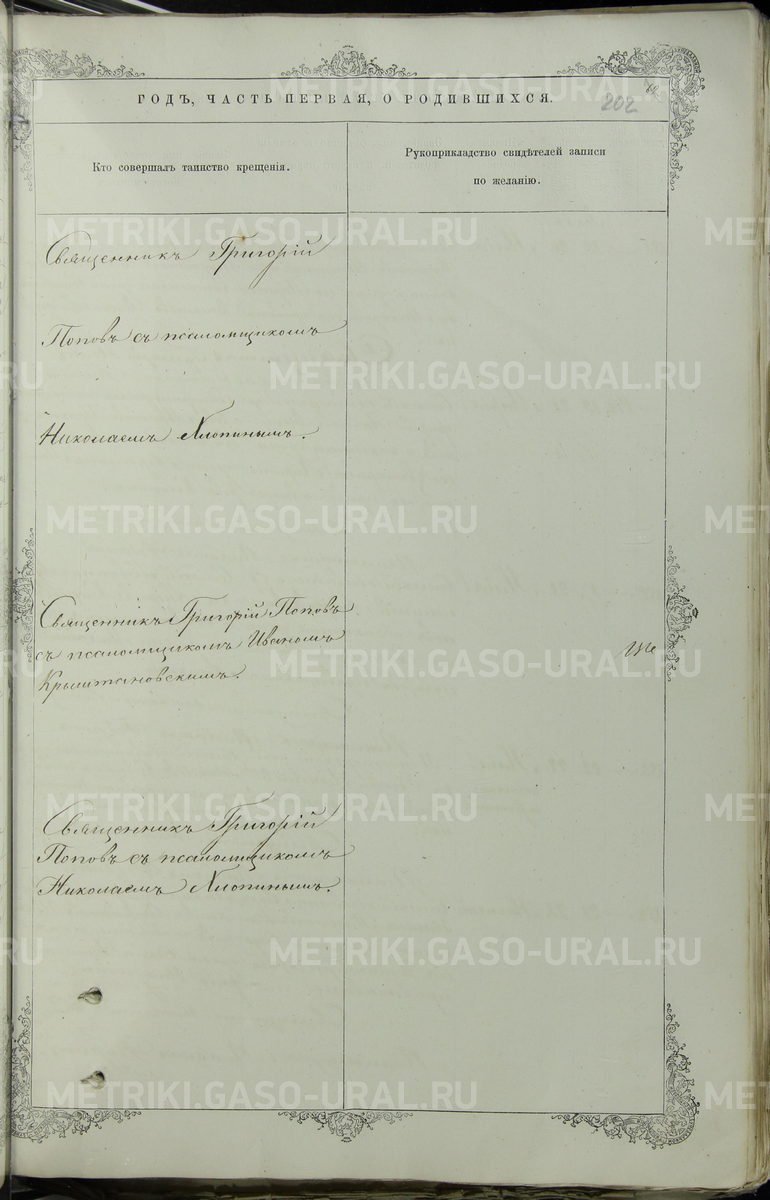 ГОДЪ, ЧАСТЬ ПЕРВАЯ, О РОДИВШИХСЯ.
202
Кто совершалъ таинство крещенія.
Рукоприкладство свидѣтелей записи
по желанію.
Священникъ Григорій
Поповъ съ псаломщикомъ
Николаемъ Хлопинымъ.
Священникъ Григорій Поповъ
съ псаломщикомъ Иваномъ
Крыштановскимъ.
Священникъ Григорій
Поповъ съ псаломщикомъ
Николаемъ Хлопинымъ.
METRIKI.GASO-URAL.RU